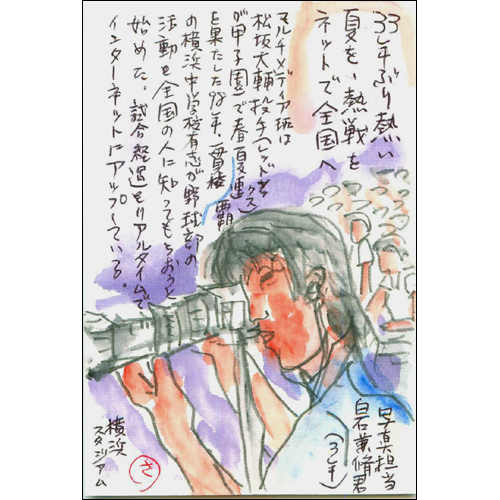 33年ぶり熱い
夏をい熱戦を
ネットで全国へ
マルチメディア班は
松坂大輔投手(レッドソックス)
が甲子園で春夏連覇
を果たした98年、一貫校
の横浜中学校有志が野球部の
活動を全国の人に知ってもらおうと
始めた。試合経過をリアルタイムで
インターネットにアップしている。
写真担当
白石兼脩君
(3年)
横浜
スタジアム
ざ